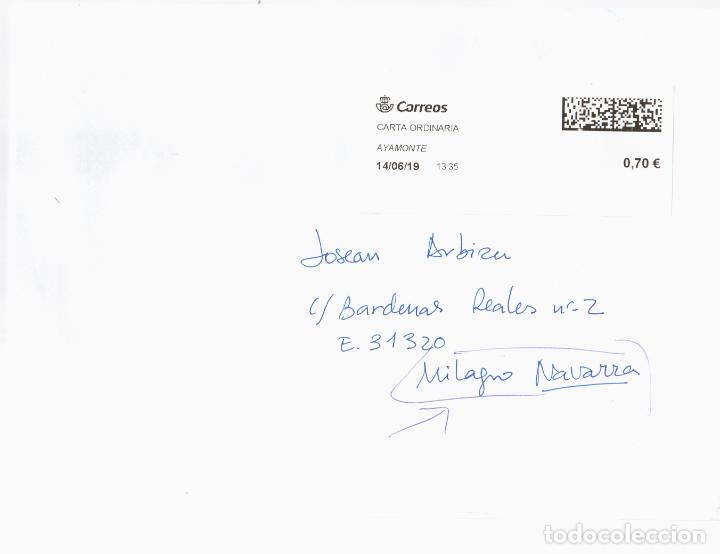 Correos
CARTA ORDINARIA
AYAMONTE
14/06/19 13:35
0,70 €
Josean Arbizu
c/ Bardenas Reales nº-2
E. 31320
Milagro Navarra
todocoleccion